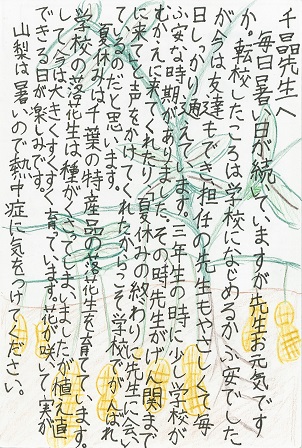 千晶先生へ
毎日暑い日が続いていますが先生お元気です
か。転校したころは学校になじめるかふ安でした
が今は友達もでき担任の先生もやさしくて毎
日しっかり通えています。三年生の時に少し学校が
ふ安な時期がありました。その時先生がげん関まで
むかえに来てくれたり、夏休みの終わりに先生に会い
に来てと声をかけてくれたからこそ学校でがんばれ
ているのだと思います。
夏休みは千葉の特産品の落花生を育てています。
学校の落花生は種がくさってしまいましたが植え直
して今は大きくすくすく育っています。花が咲いて実が
できる日が楽しみです。
山梨は暑いので熱中症に気をつけください。